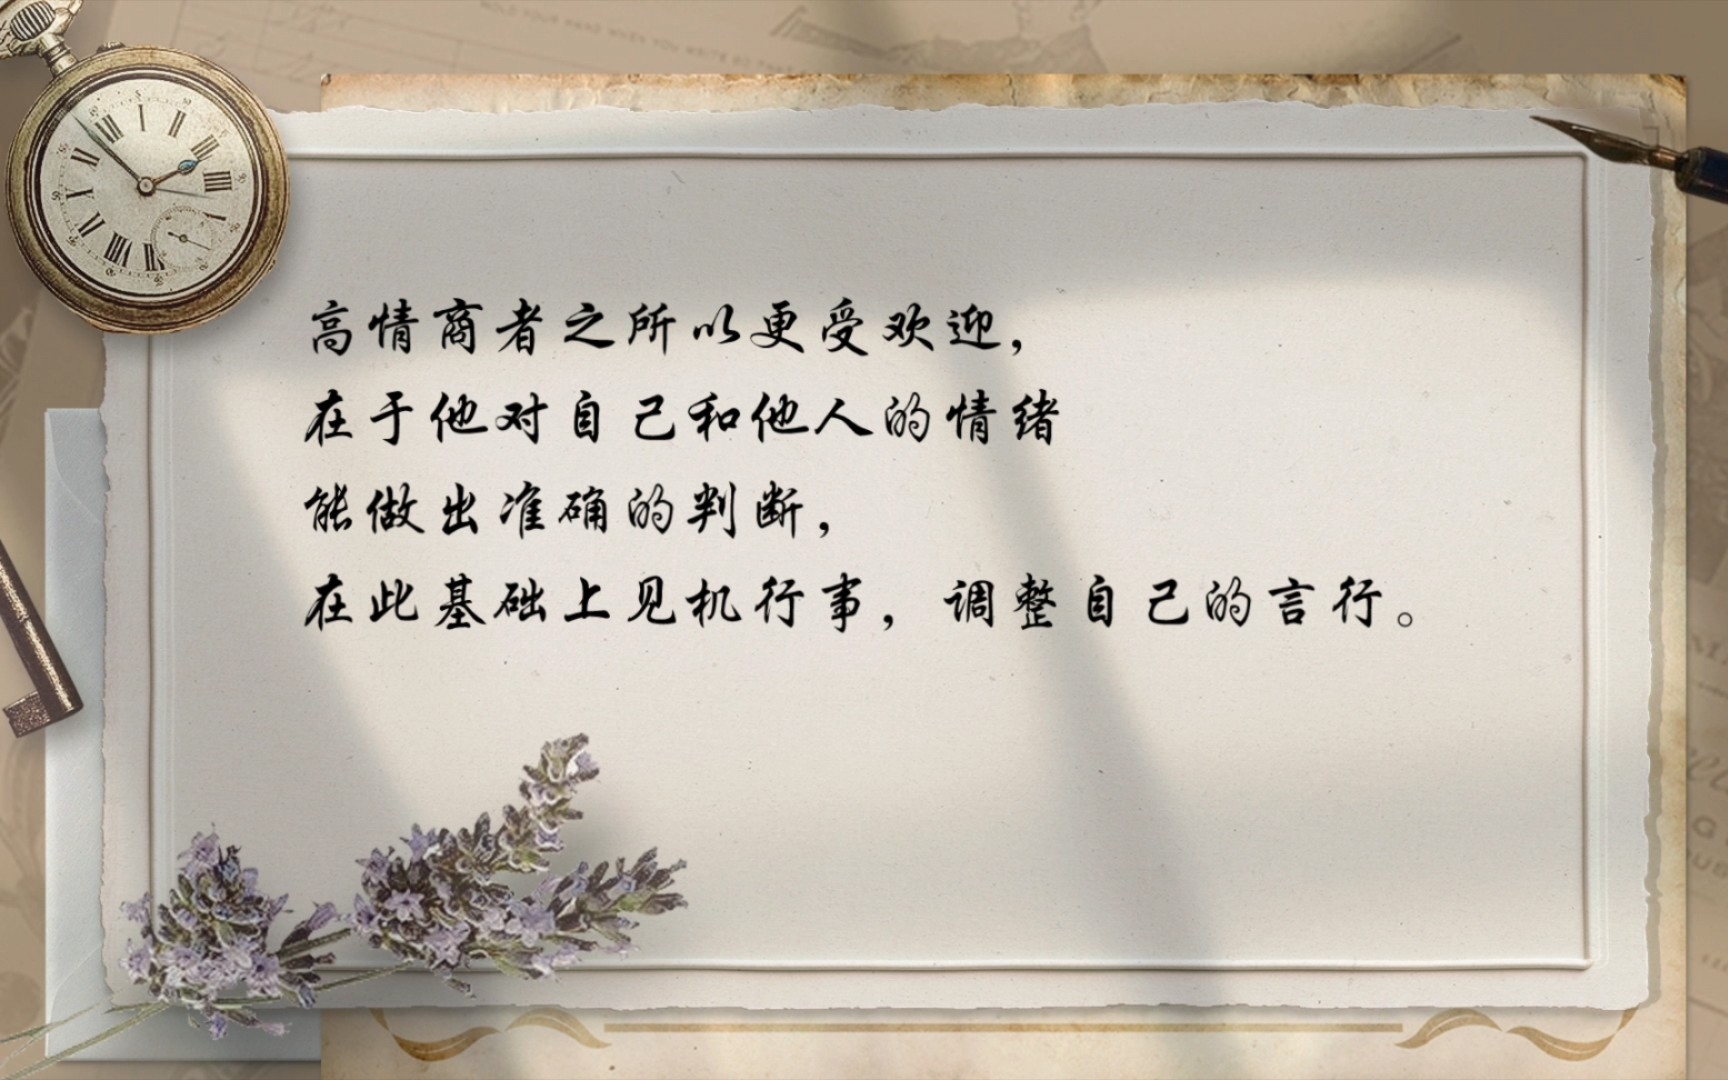 高情商者之所以更受欢迎，
在于他对自己和他人的情绪
能做出准确的判断，
在此基础上见机行事，调整自己的言行。